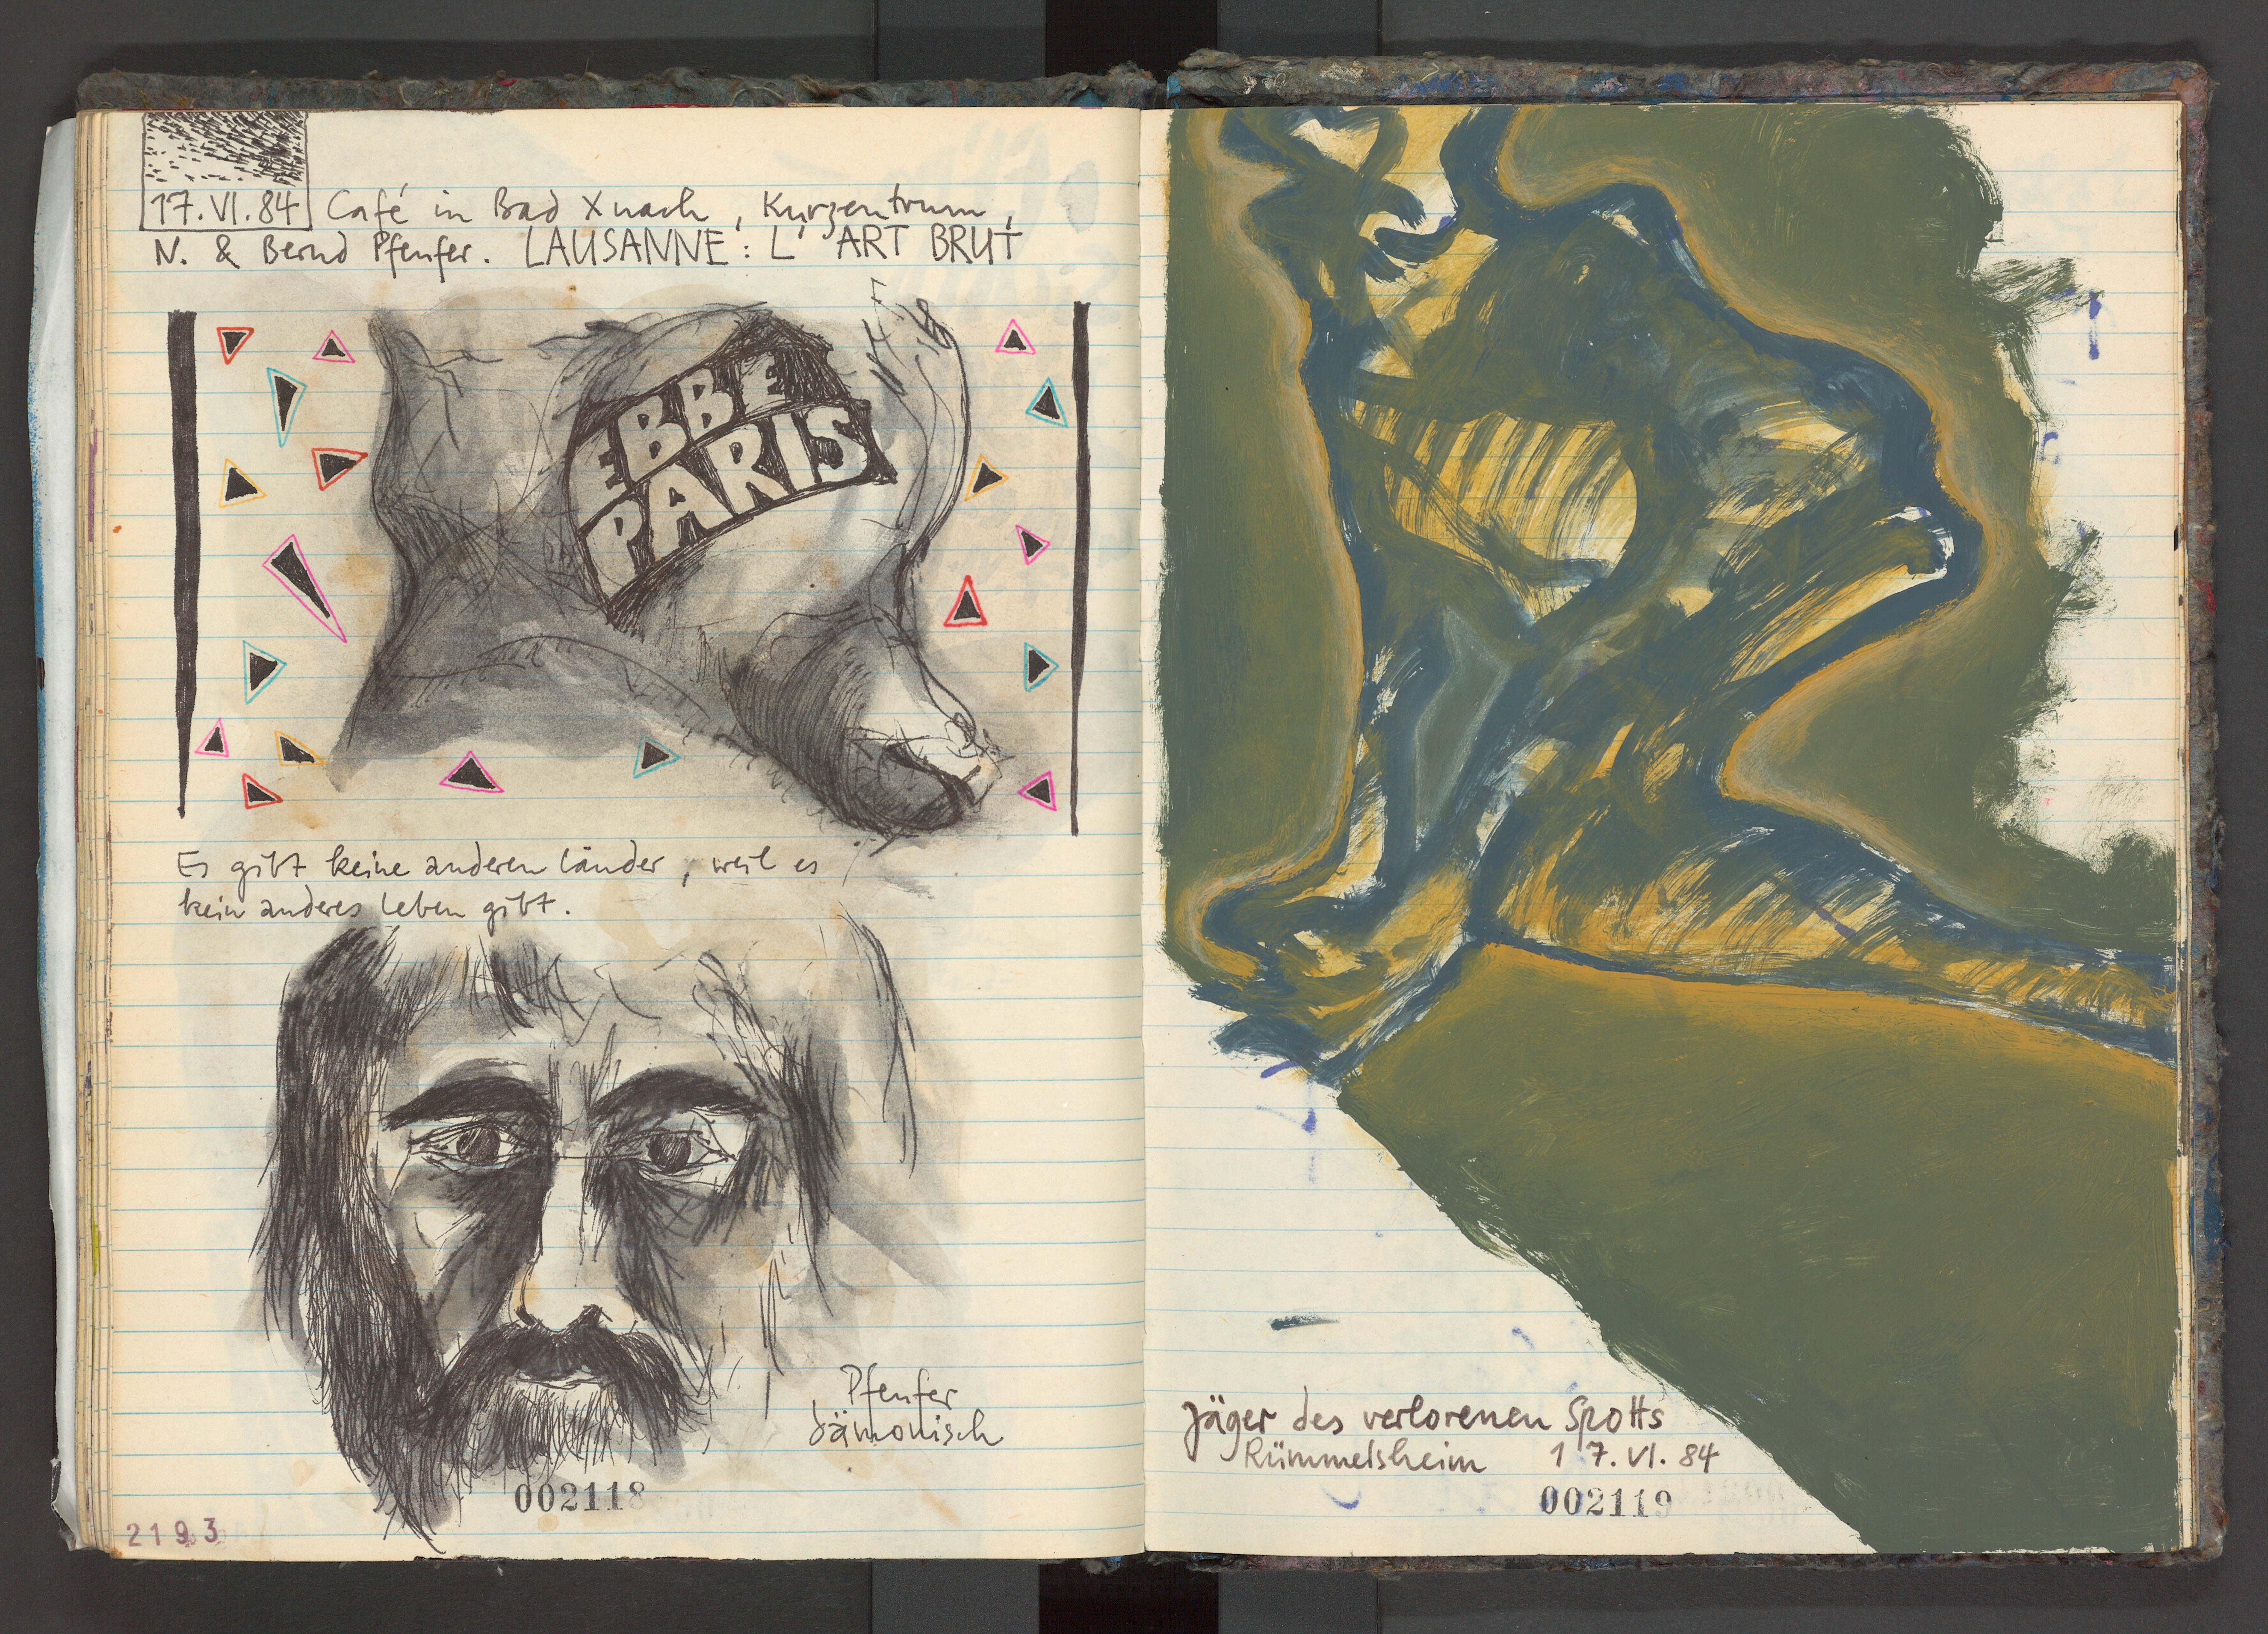 17.VI.84 Café in Bad Xnach, Kurzentrum,
N. & Bernd Pfenfer. LAUSANNE: L'ART BRUT
EBBE
PARIS
Es gibt keine anderen Länder, weil es
kein anderes Leben gibt.
Pfenfer
dämonisch
002118
2193
Jäger des verlorenen Spotts
Rümmelsheim 17.VI.84
002119